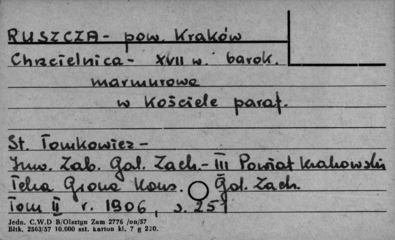 RUSZCZA - pow. Kraków
Chrzcielnica - XVII w. barok.
marmurowa
w kościele paraf.
St. Tomkowicz -
Inw. Zab. Gal. Zach. - III Powiat Krakowski
Teka Grona Kons. Gal. Zach.
Tom II r. 1906, s. 251
Jedn. C.W.D B/Olsztyn Zam 2776 /on/57
Bltk. 2563/57 10.000 szt. karton kl. 7 g 220.